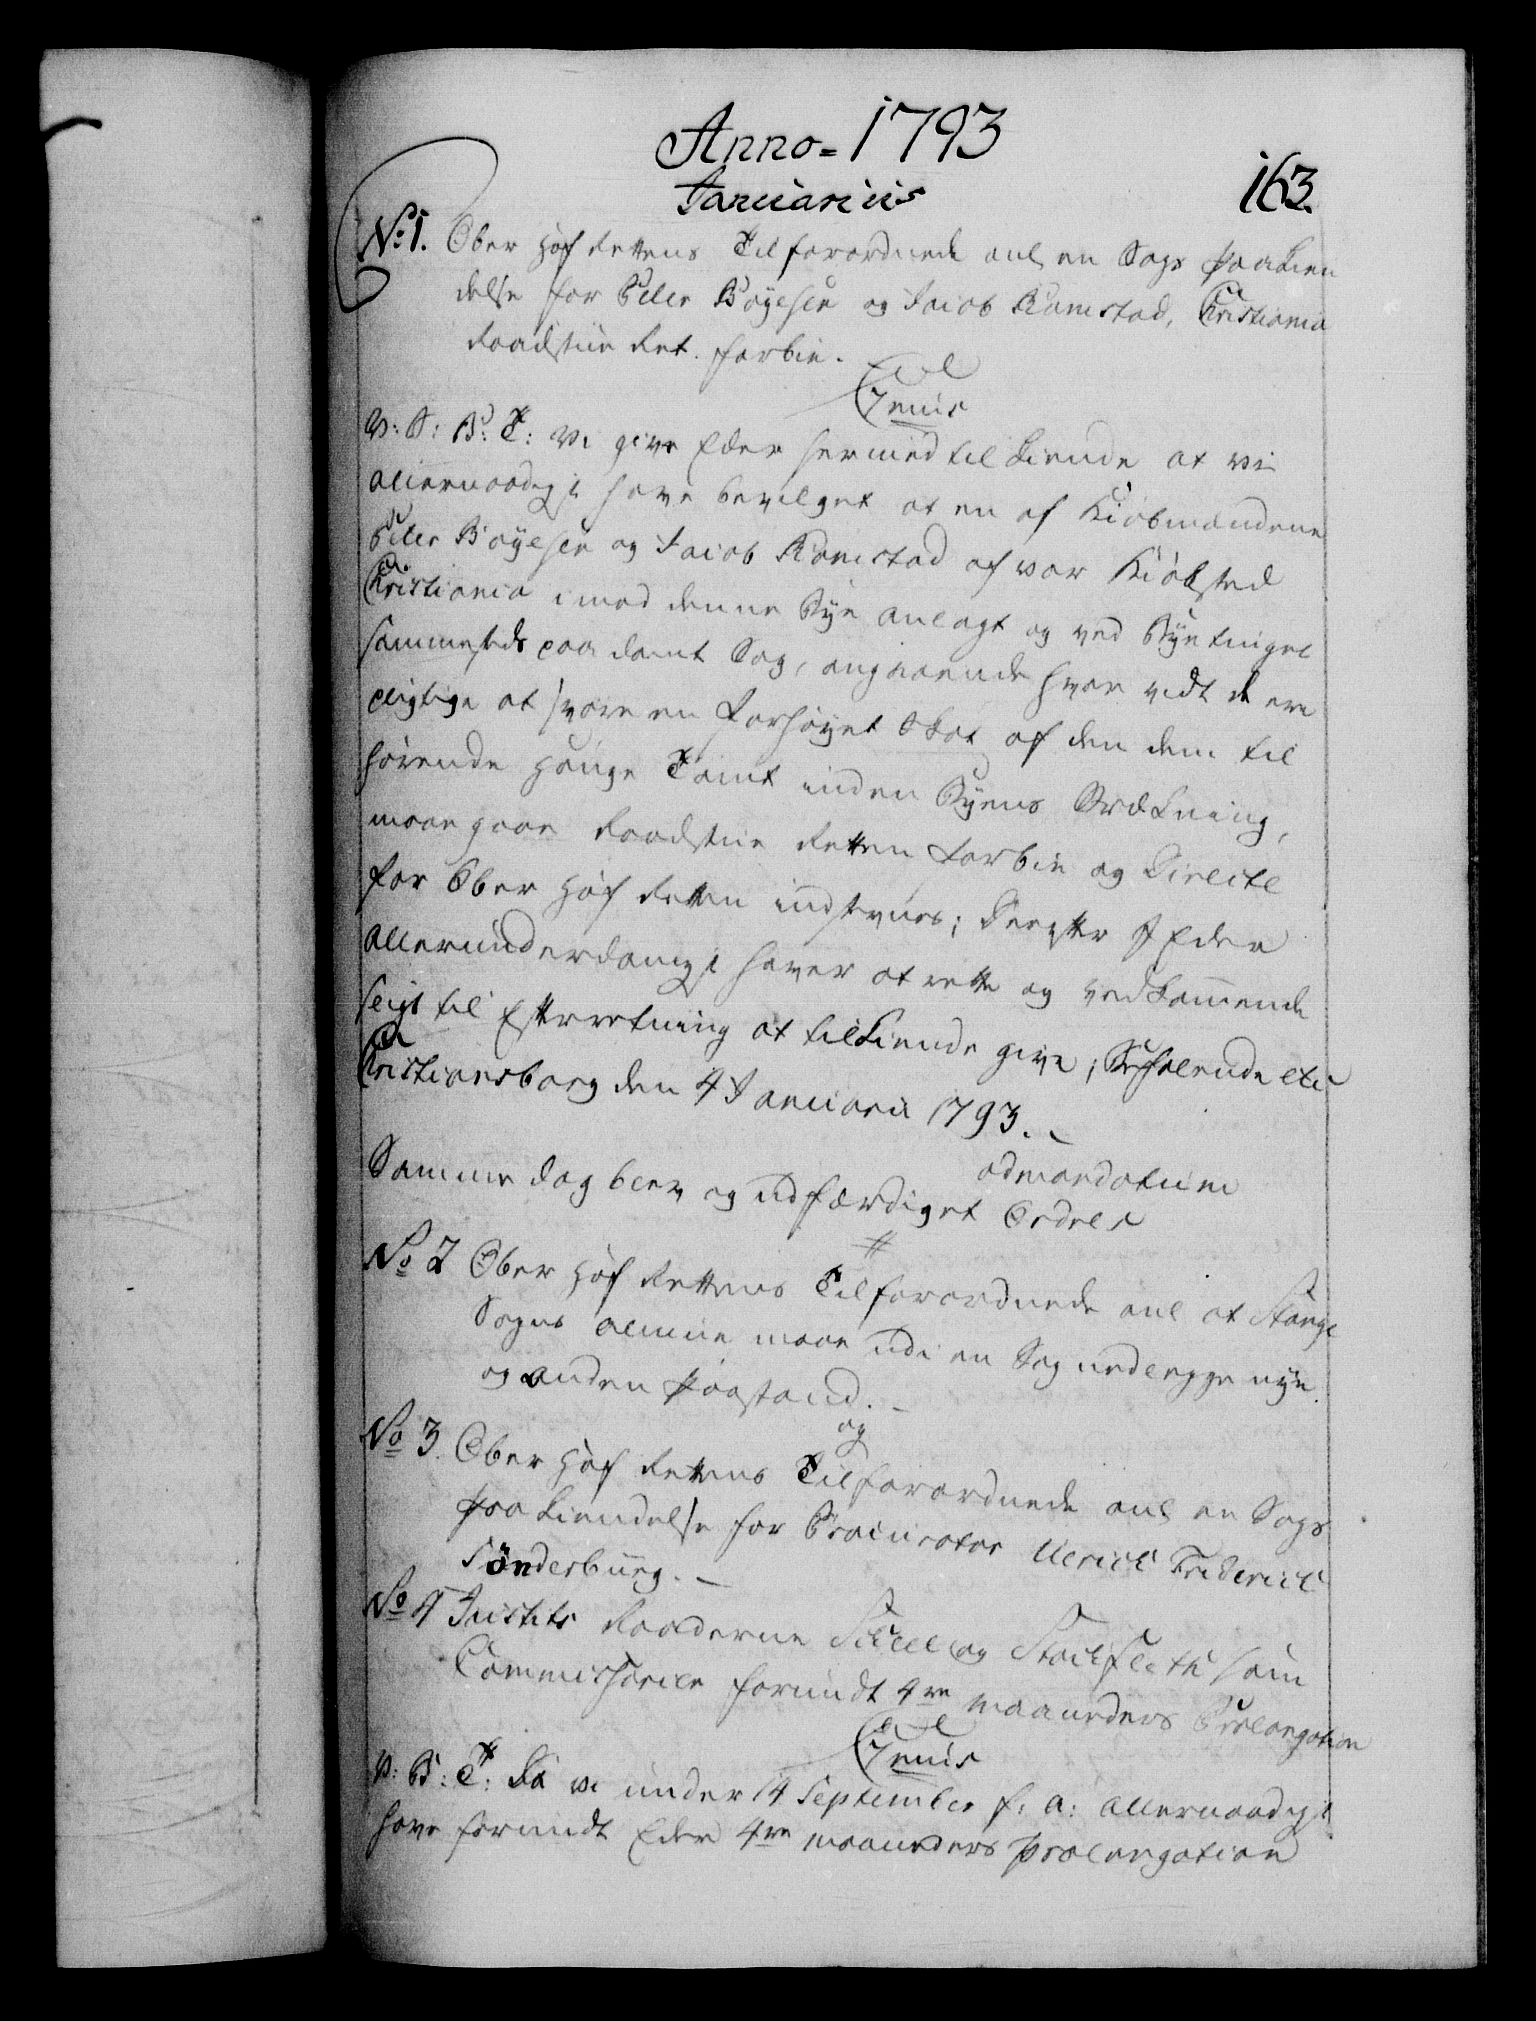 Anno = 1793
Januarius
163.
No 1. Ober Hof Rettens Tilforordnede anl en Sags Paakien
delse for Peter Boyesen og Jacob Ramstad, Christiania
Raadstue Ret forbie.
Genus
V: S: B: T: Vi give Eder hermed tilkiende at vi
allernaadigst have bevilget at en af Kiøbmændene
Peter Boyesen og Jacob Ramstad af vor Kiøbsted
Christiania imod denne Bye anlagt og ved Byetinget
sammesteds paadømt Sag, angaaende hvor vidt de ere
pligtige at svare en forhøyet Skat af den dem til
hørende Hauge Tomt inden Byens Strækning,
maae gaae Raadstue Retten forbie og directe
for Ober Hof Retten indstevnes; Derefter I Eder
allerunderdanigst haver at rette og vedkommende
seligt til Efterretning at tilkiende give; Befalende etc
Christiansborg den 4 Januarii 1793. -
ad mandatum
Samme dag blev og udfærdiget Ordres
No 2 Ober Hof Rettens Tilforordnede anl at Stange
Sogns Almue maae udi en Sag nedlegge nye
og anden Paastand. -
og
No 3. Ober Hof Rettens Tilforordnede anl en Sags
Paakiendelse for Procurator Ulrich Friderich
Sønderburg. -
No 4 Justits Raaderne Sibbern og Stockfleth som
Commissarier forundt 4re Maaneders Prolongation
Genus
V: B: T: Da vi under 14 September f: A: allernaadigst
have forundt Eder 4re Maaneders Prolongation